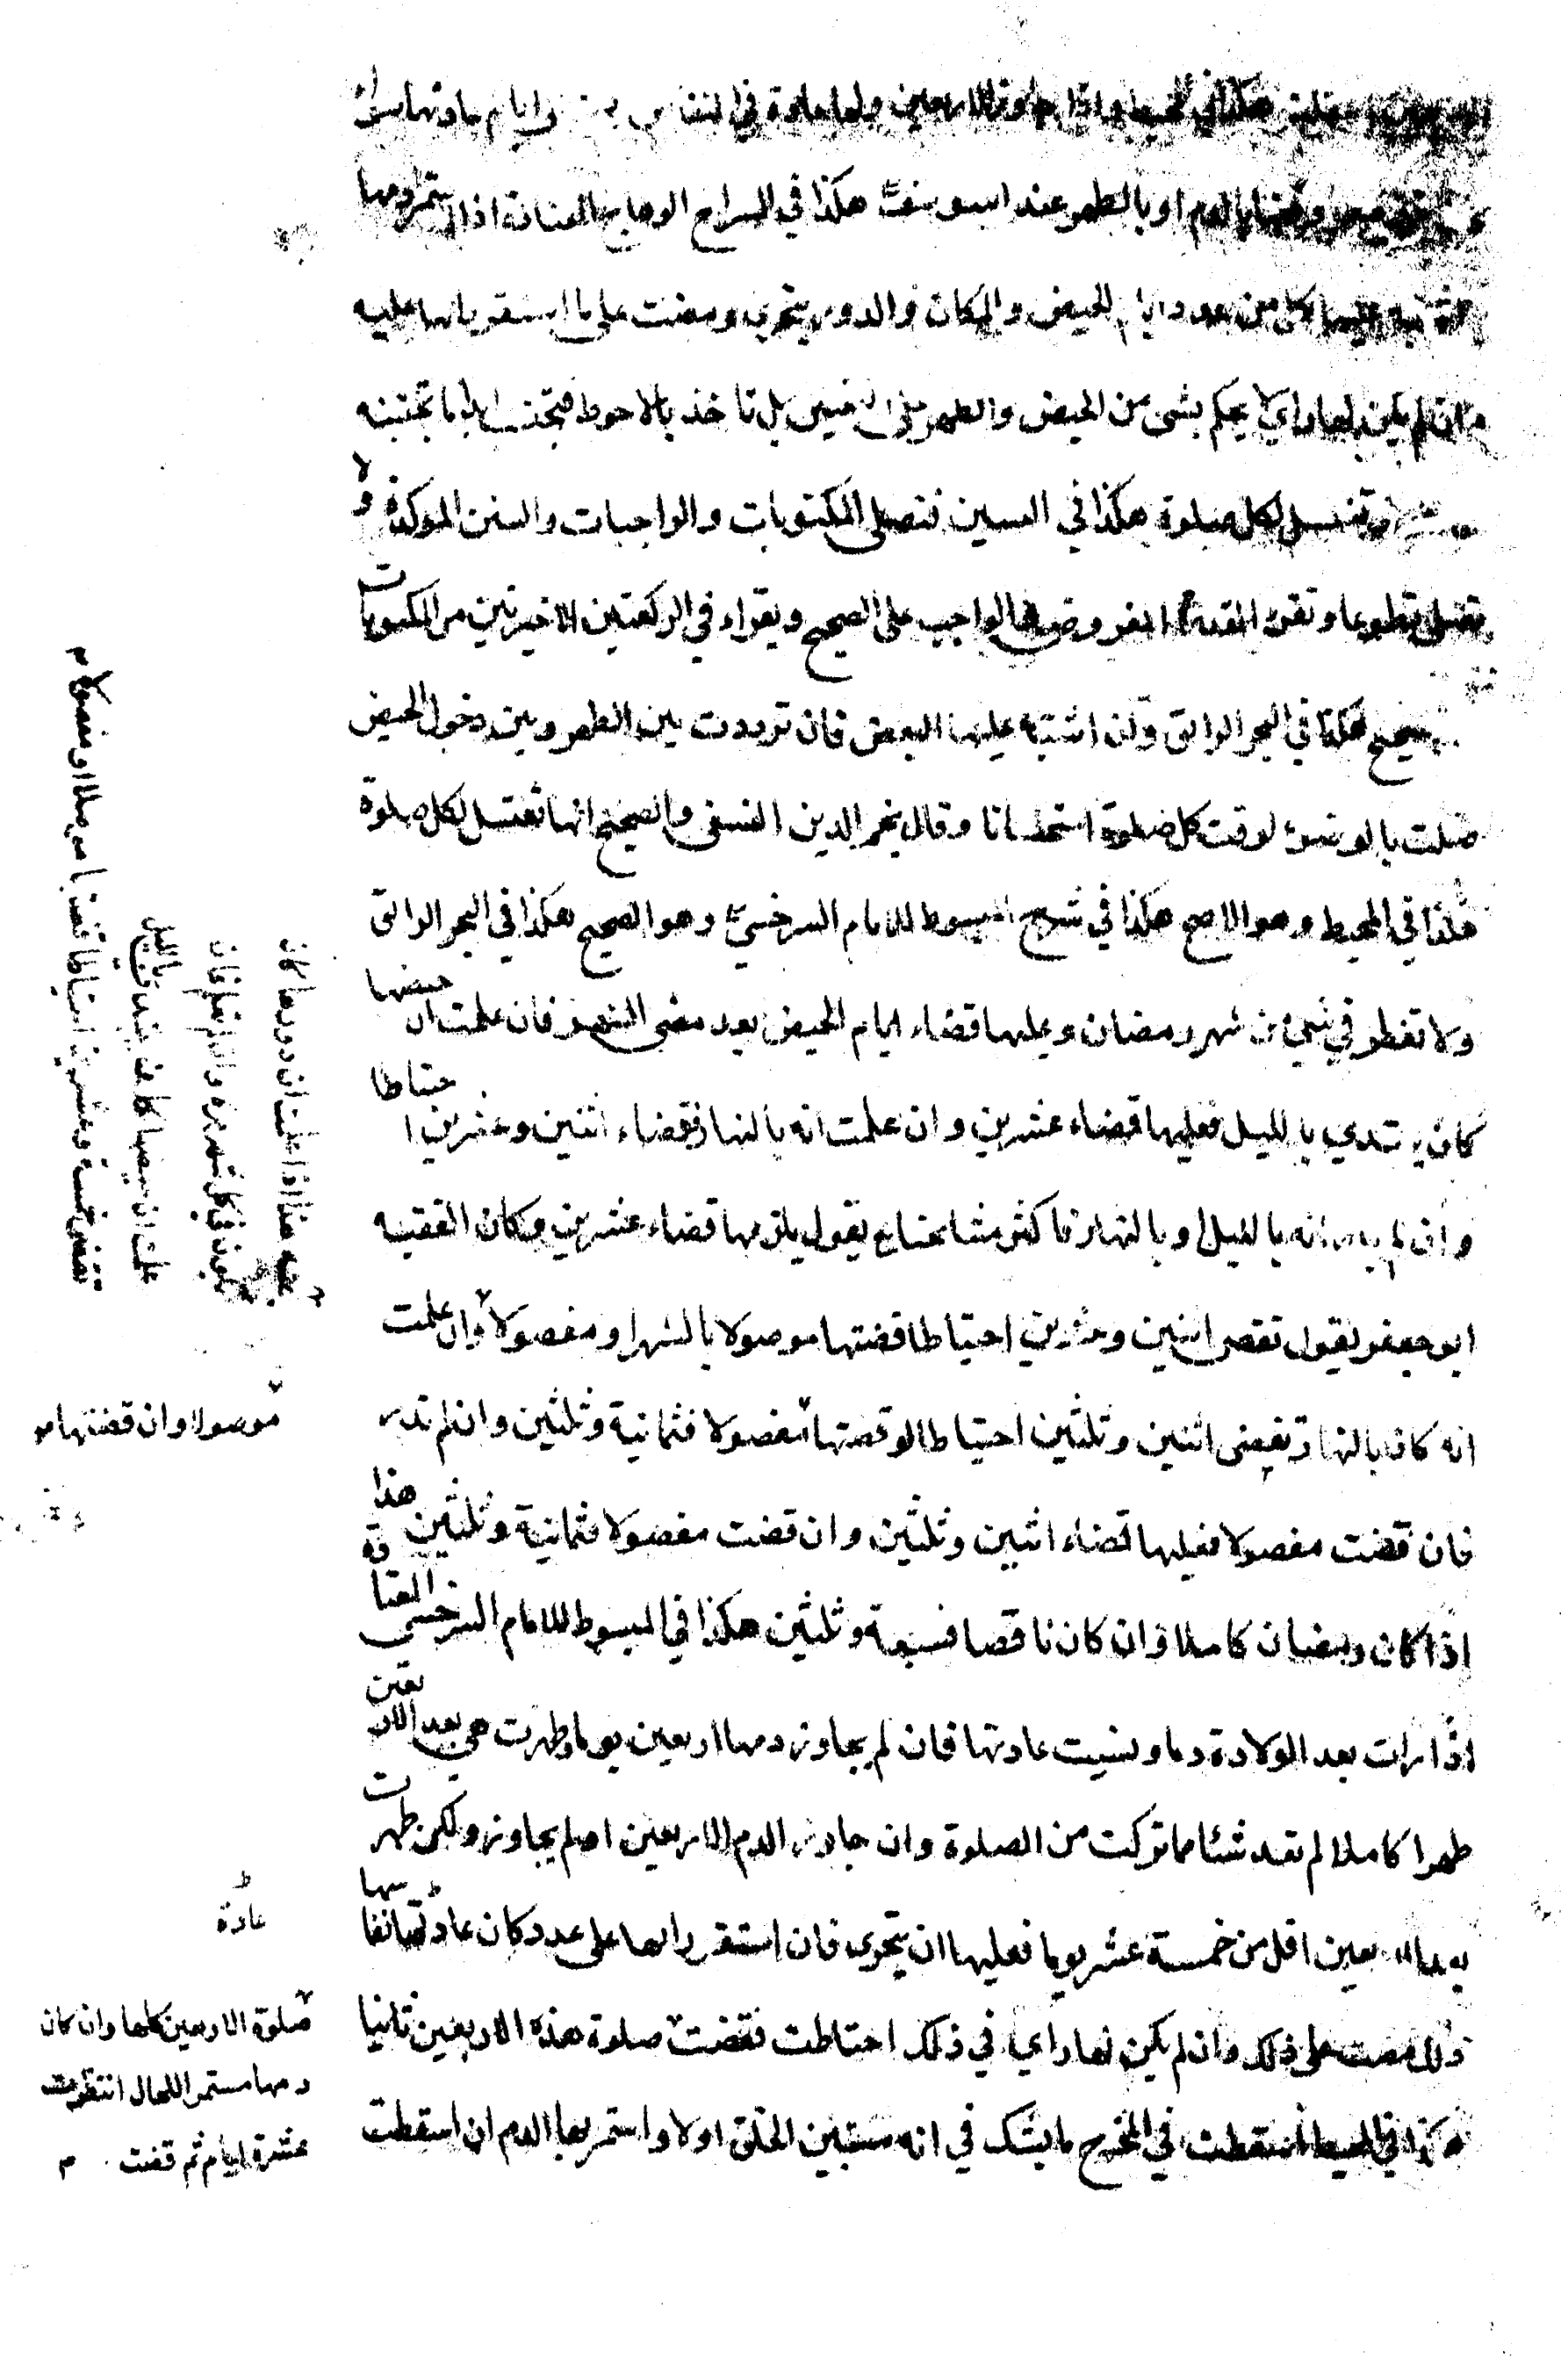 هكذا في المحيط واذا جاوز الاربعين ولها عادة في النفاس
بالدم او بالطهر عند ابي يوسف هكذا في السراج الوهاج العتاقة اذا استمر دمها
عليها كل من عدد ايام الحيض والمكان والدور يتحرى ومضت على ما استقر رايها عليه
وان لم يكن لها راي لا يحكم بشيء من الحيض والطهر على التعيين بل تاخذ بالاحوط فتجتنب ابدا ما تجتنبه
وتغتسل لكل صلوة هكذا في التبيين فتصلى المكتوبات والواجبات والسنن الموكدة ولا
تصلى تطوعا وتقرء القدر المفروض والواجب على الصحيح ويقراء في الركعتين الاخيرتين من المكتوبات
صحيح هكذا في البحر الرائق وان اشتبه عليها البعض فان ترددت بين الطهر وبين دخول الحيض
صلت بالوضوء لوقت كل صلوة استحسانا وقال نجم الدين النسفى والصحيح انها تغتسل لكل صلوة
هكذا في المحيط وهو الاصح هكذا في شرح المبسوط للامام السرخسي وهو الصحيح هكذا في البحر الرائق
ولا تفطر في شيء من شهر رمضان وعليها قضاء ايام الحيض بعد مضى الشهر فان علمت ان حيضها
كان يبتدي بالليل فعليها قضاء عشرين وان علمت انه بالنهار فقضاء اثنين وعشرين احتياطا
وان لم يدر انه بالليل او بالنهار فاكثر مشايخنا يقول يلزمها قضاء عشرين وكان الفقيه
ابو جعفر يقول تقضى اثنين وعشرين احتياطا قضتها موصولا بالشهر او مفصولا وان علمت
انه كان بالنهار تقضى اثنين وثلثين احتياطا لو قضتها مفصولا فثمانية وثلثين وان لم تدر
فان قضت مفصولا فعليها قضاء اثنين وثلثين وان قضت مفصولا فثمانية وثلثين هذا
اذا كان رمضان كاملا وان كان ناقصا فسبعة وثلثين هكذا في المبسوط للامام السرخسي العتاقة
اذا رات بعد الولادة دما ونسيت عادتها فان لم يجاوز دمها اربعين يوما وطهرت هي بعد الاربعين
طهرا كاملا لم تعد شئا مما تركت من الصلوة وان جاوز الدم الاربعين او لم يجاوز ولكن طهرت
بعد الاربعين اقل من خمسة عشر يوما فعليها ان يتحرى فان استقر رايها على عدد كان عادتها نفاسها
ذلك مضت على ذلك وان لم يكن لها راي في ذلك احتاطت فقضت صلوة هذه الاربعين ثانيا
هكذا في المحيط اسقطت في المخرج ما يشك في انه مستبين الخلق او لا واستمر بها الدم ان اسقطت
هذا اذا علمت ان دورها كان
يكون في كل شهر مرة وان لم تعلم فان
علمت ان حيضها كان يبتدئ بالليل
تقضى خمسة وعشرين احتياطا قضتها موصولا او مفصولا م
موصولا وان قضتها
عادة
صلوة الاربعين كلها وان كان
دمها مستمر اللحال انتظرت
عشرة ايام ثم قضت م